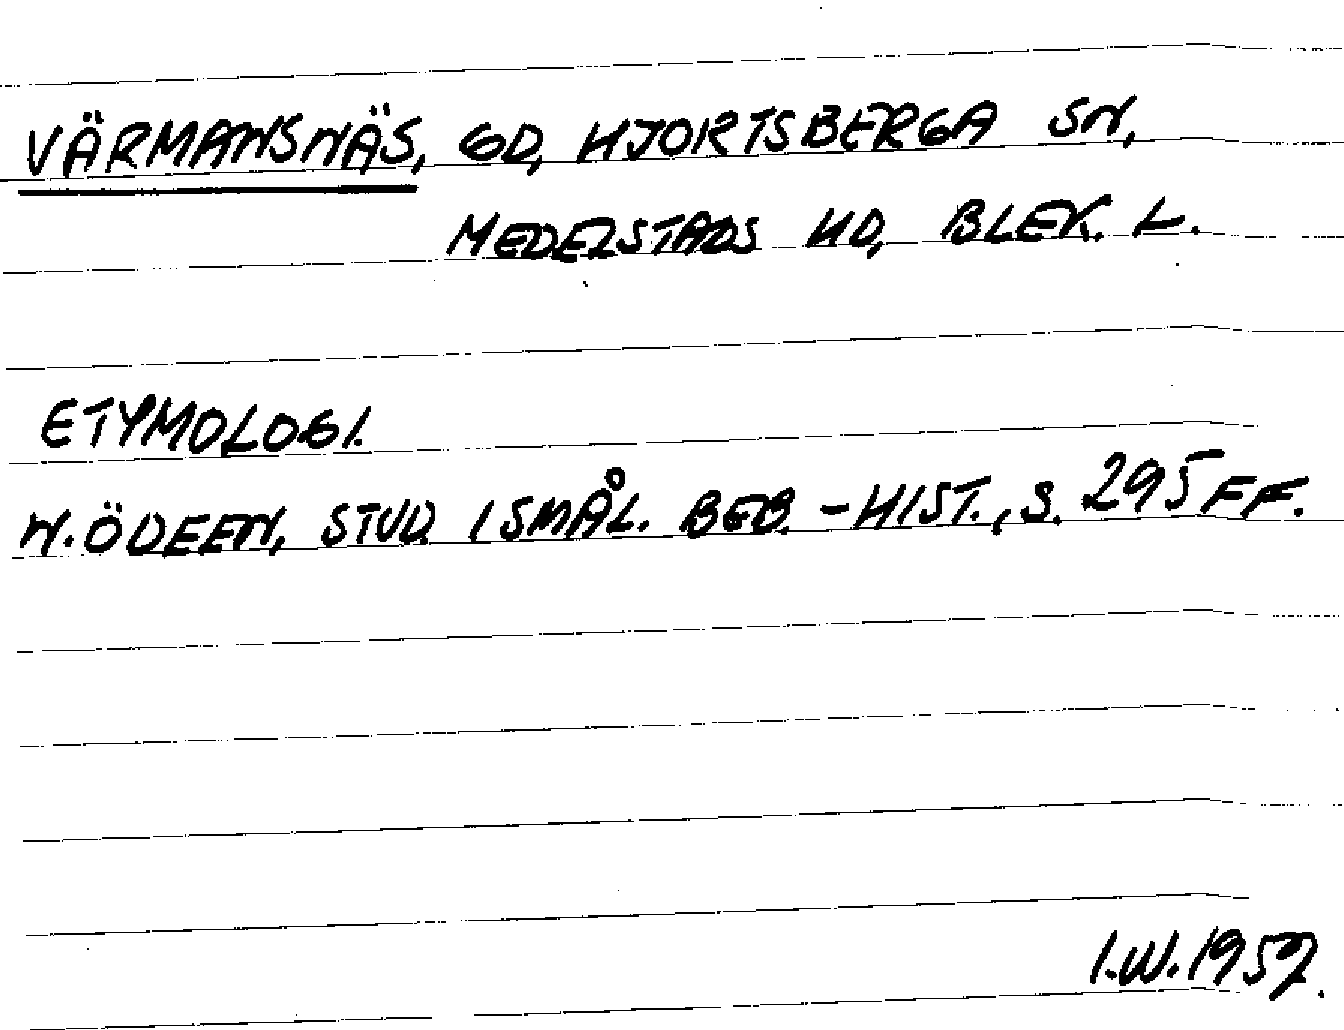 VÄRMANSNÄS, GD, HJORTSBERGA SN,
MEDELSTADS HD, BLEK. L.
ETYMOLOGI.
N. ÖDEEN, STUD. I SMÅL. BEB.-HIST., S. 295 FF.
I.W. 1957.